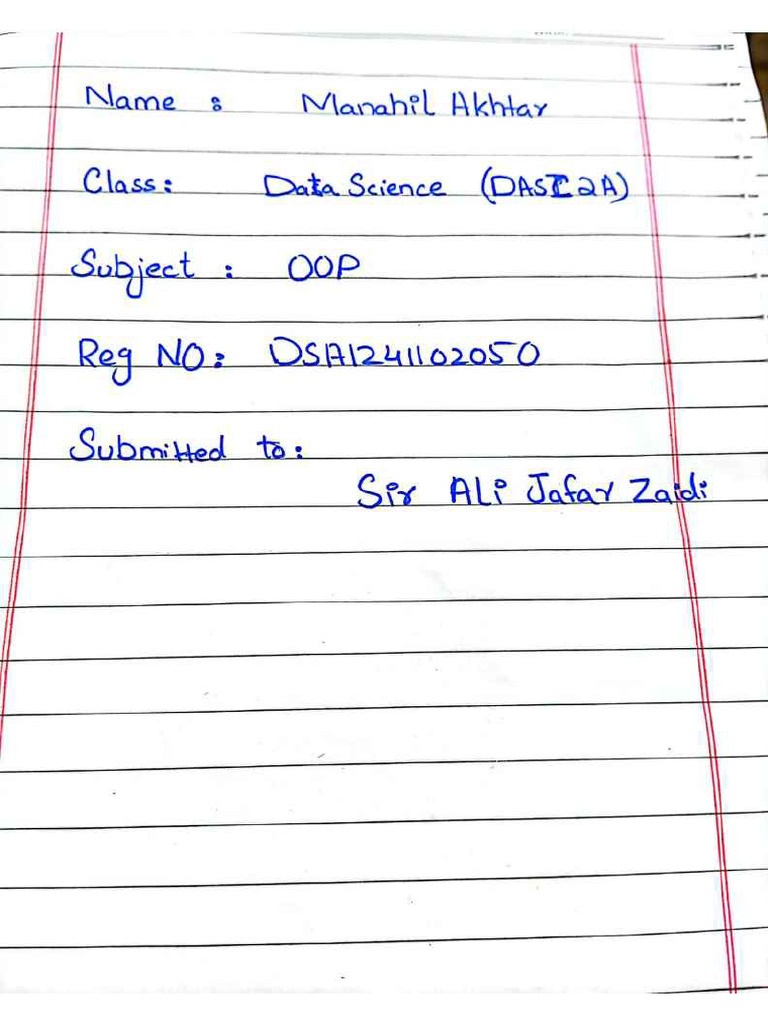 Name : Manahil Akhtar
Class: Data Science (DASC2A)
Subject : OOP
Reg NO: DSA1241102050
Submitted to:
Sir Ali Jafar Zaidi